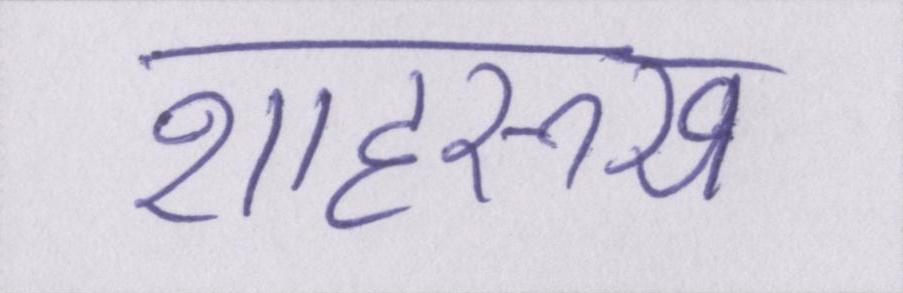 शाहरूख